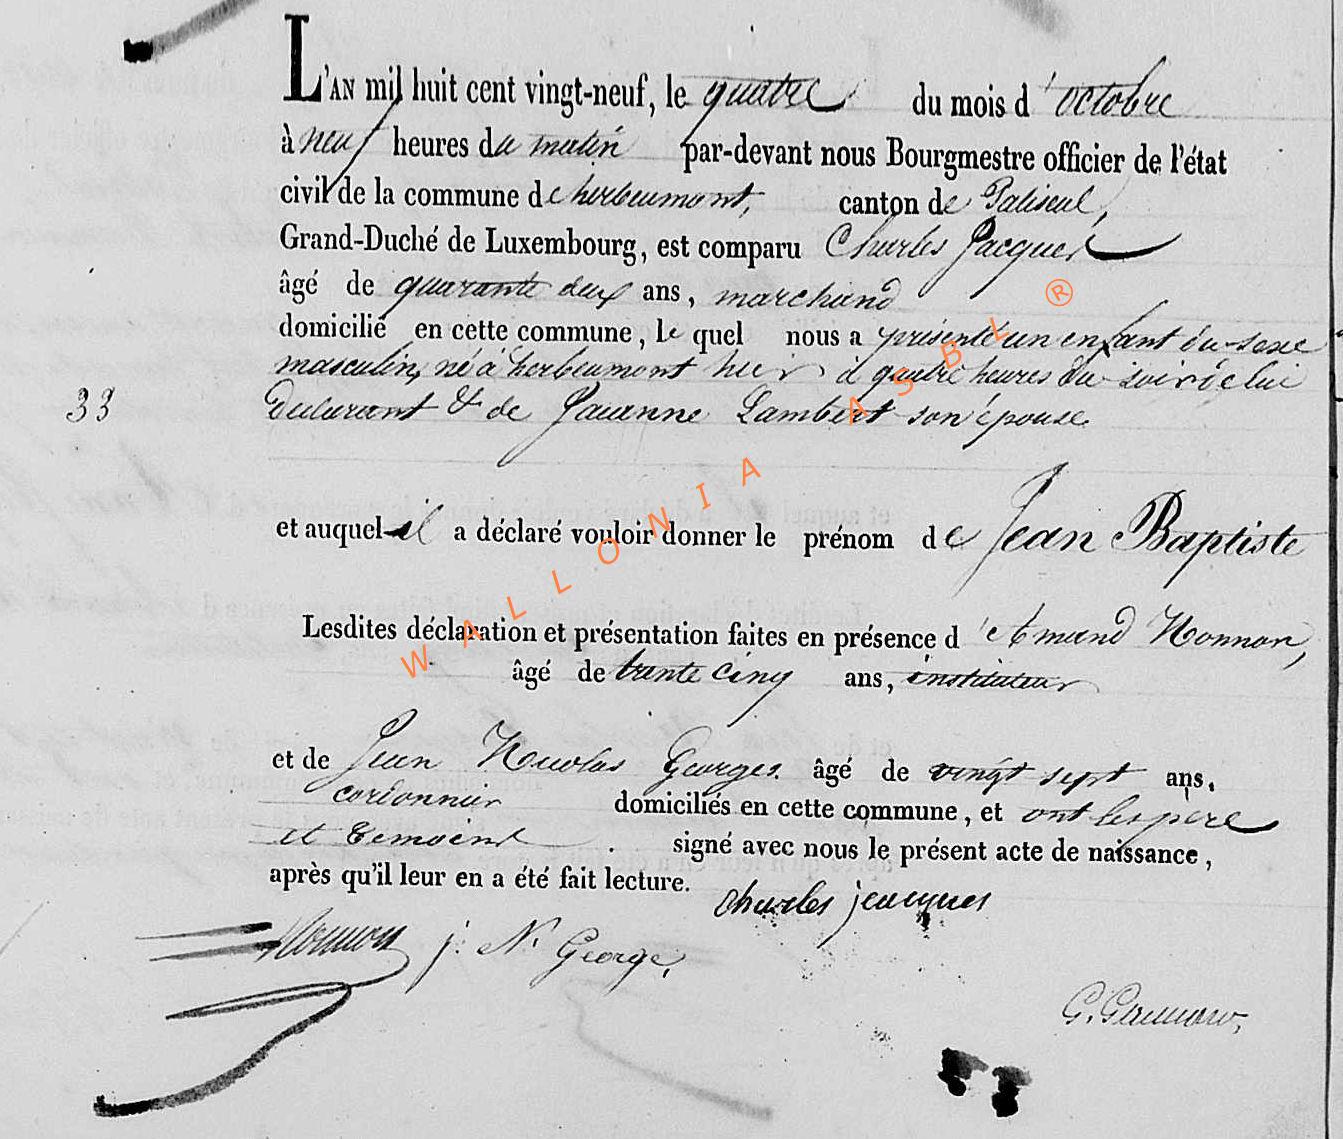 L'AN mil huit cent vingt-neuf, le quatre du mois d'octobre
à neuf heures du matin par-devant nous Bourgmestre officier de l'état
civil de la commune de herbeumont, canton de Paliseul,
Grand-Duché de Luxembourg, est comparu Charles Jacques
âgé de quarante deux ans, marchand
domicilié en cette commune, le quel nous a présenté un enfant du sexe
masculin, né à herbeumont hier à quatre heures du soir de lui
33 Déclarant & de Jeanne Lambert son épouse.
et auquel il a déclaré vouloir donner le prénom de Jean Baptiste
Lesdites déclaration et présentation faites en présence d' Monnon,
âgé de trente cinq ans, instituteur
et de Jean Nicolas Georges. âgé de vingt sept ans.
cordonnier domiciliés en cette commune, et ont les père
et temoins . signé avec nous le présent acte de naissance,
après qu'il leur en a été fait lecture.
charles jacques
j. N. George,
WALLONIA ASBL ®